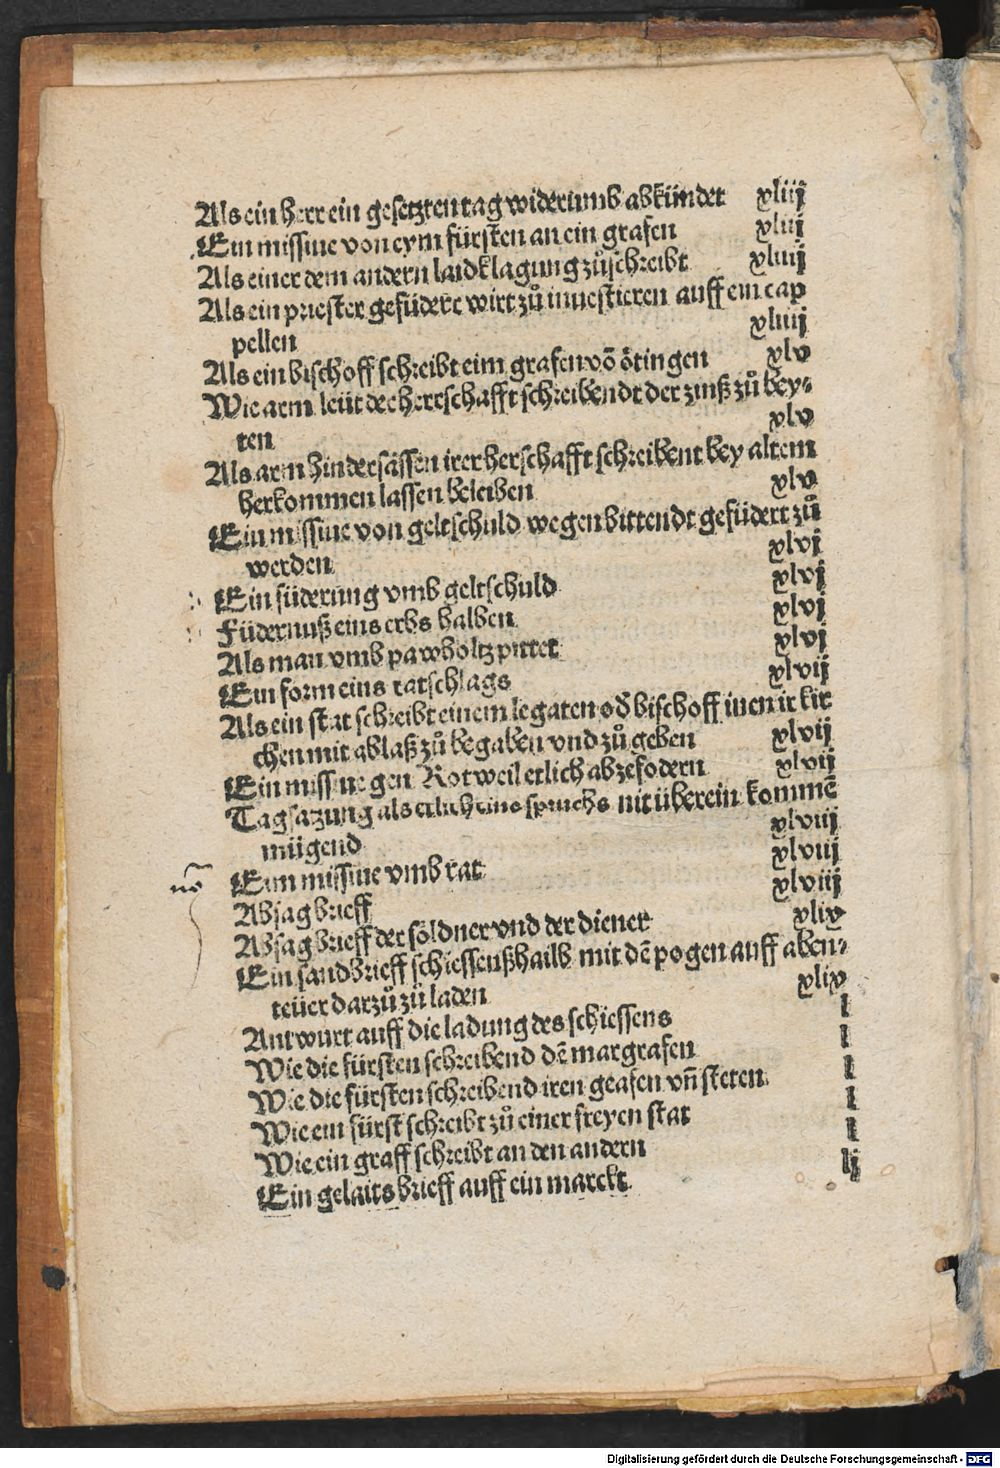 Als ein herr ein gesetzten tag widerumb abkündet xliij
Ein missiue von eym fürsten an ein grafen xliij
Als einer dem andern laidklagung zůschreibt xliiij
Als ein priester gefüdert wirt zů inuestieren auff ein cap
pellen xliiij
Als ein bischoff schreibt eim grafen võ ötingen xlv
Wie arm leüt der herrschafft schreibendt der zinß zů bey⸗
ten xlv
Als arm hindersässen irer herschafft schreibent bey altem
herkommen lassen beleiben xlv
Ein missiue von geltschuld wegen bittendt gefüdert zů
werden xlvj
Ein füderung vmb geltschuld xlvj
Füdernuß eins erbs halben xlvj
Als man vmb pawholtz pittet xlvj
Ein form eins ratschlags xlvij
Als ein stat schreibt einem legaten od̕ bischoff inen ir kir
chen mit ablaß zů begaben vnd zů geben xlvij
Ein missiue gen Rotweil etlich abzefodern xlvij
Tagsatzung als etlich eins spruchs nit überein kommē
mügend xlviij
Ein missiue vmb rat xlviij
Absag brieff xlviij
Absag brieff der söldner vnd der diener xlix
Ein sandbrieff schiessenßhalb mit dē pogen auff aben⸗
teüer darzů zů laden xlix
Antwurt auff die ladung des schiessens l
Wie die fürsten schreibend dē margrafen l
Wie die fürsten schreibend iren grafen vñ steten l
Wie ein fürst schreibt zů einer freyen stat l
Wie ein graff schreibt an den andern l
Ein gelaits brieff auff ein marckt lj
Digitalisierung gefördert durch die Deutsche Forschungsgemeinschaft - DFG